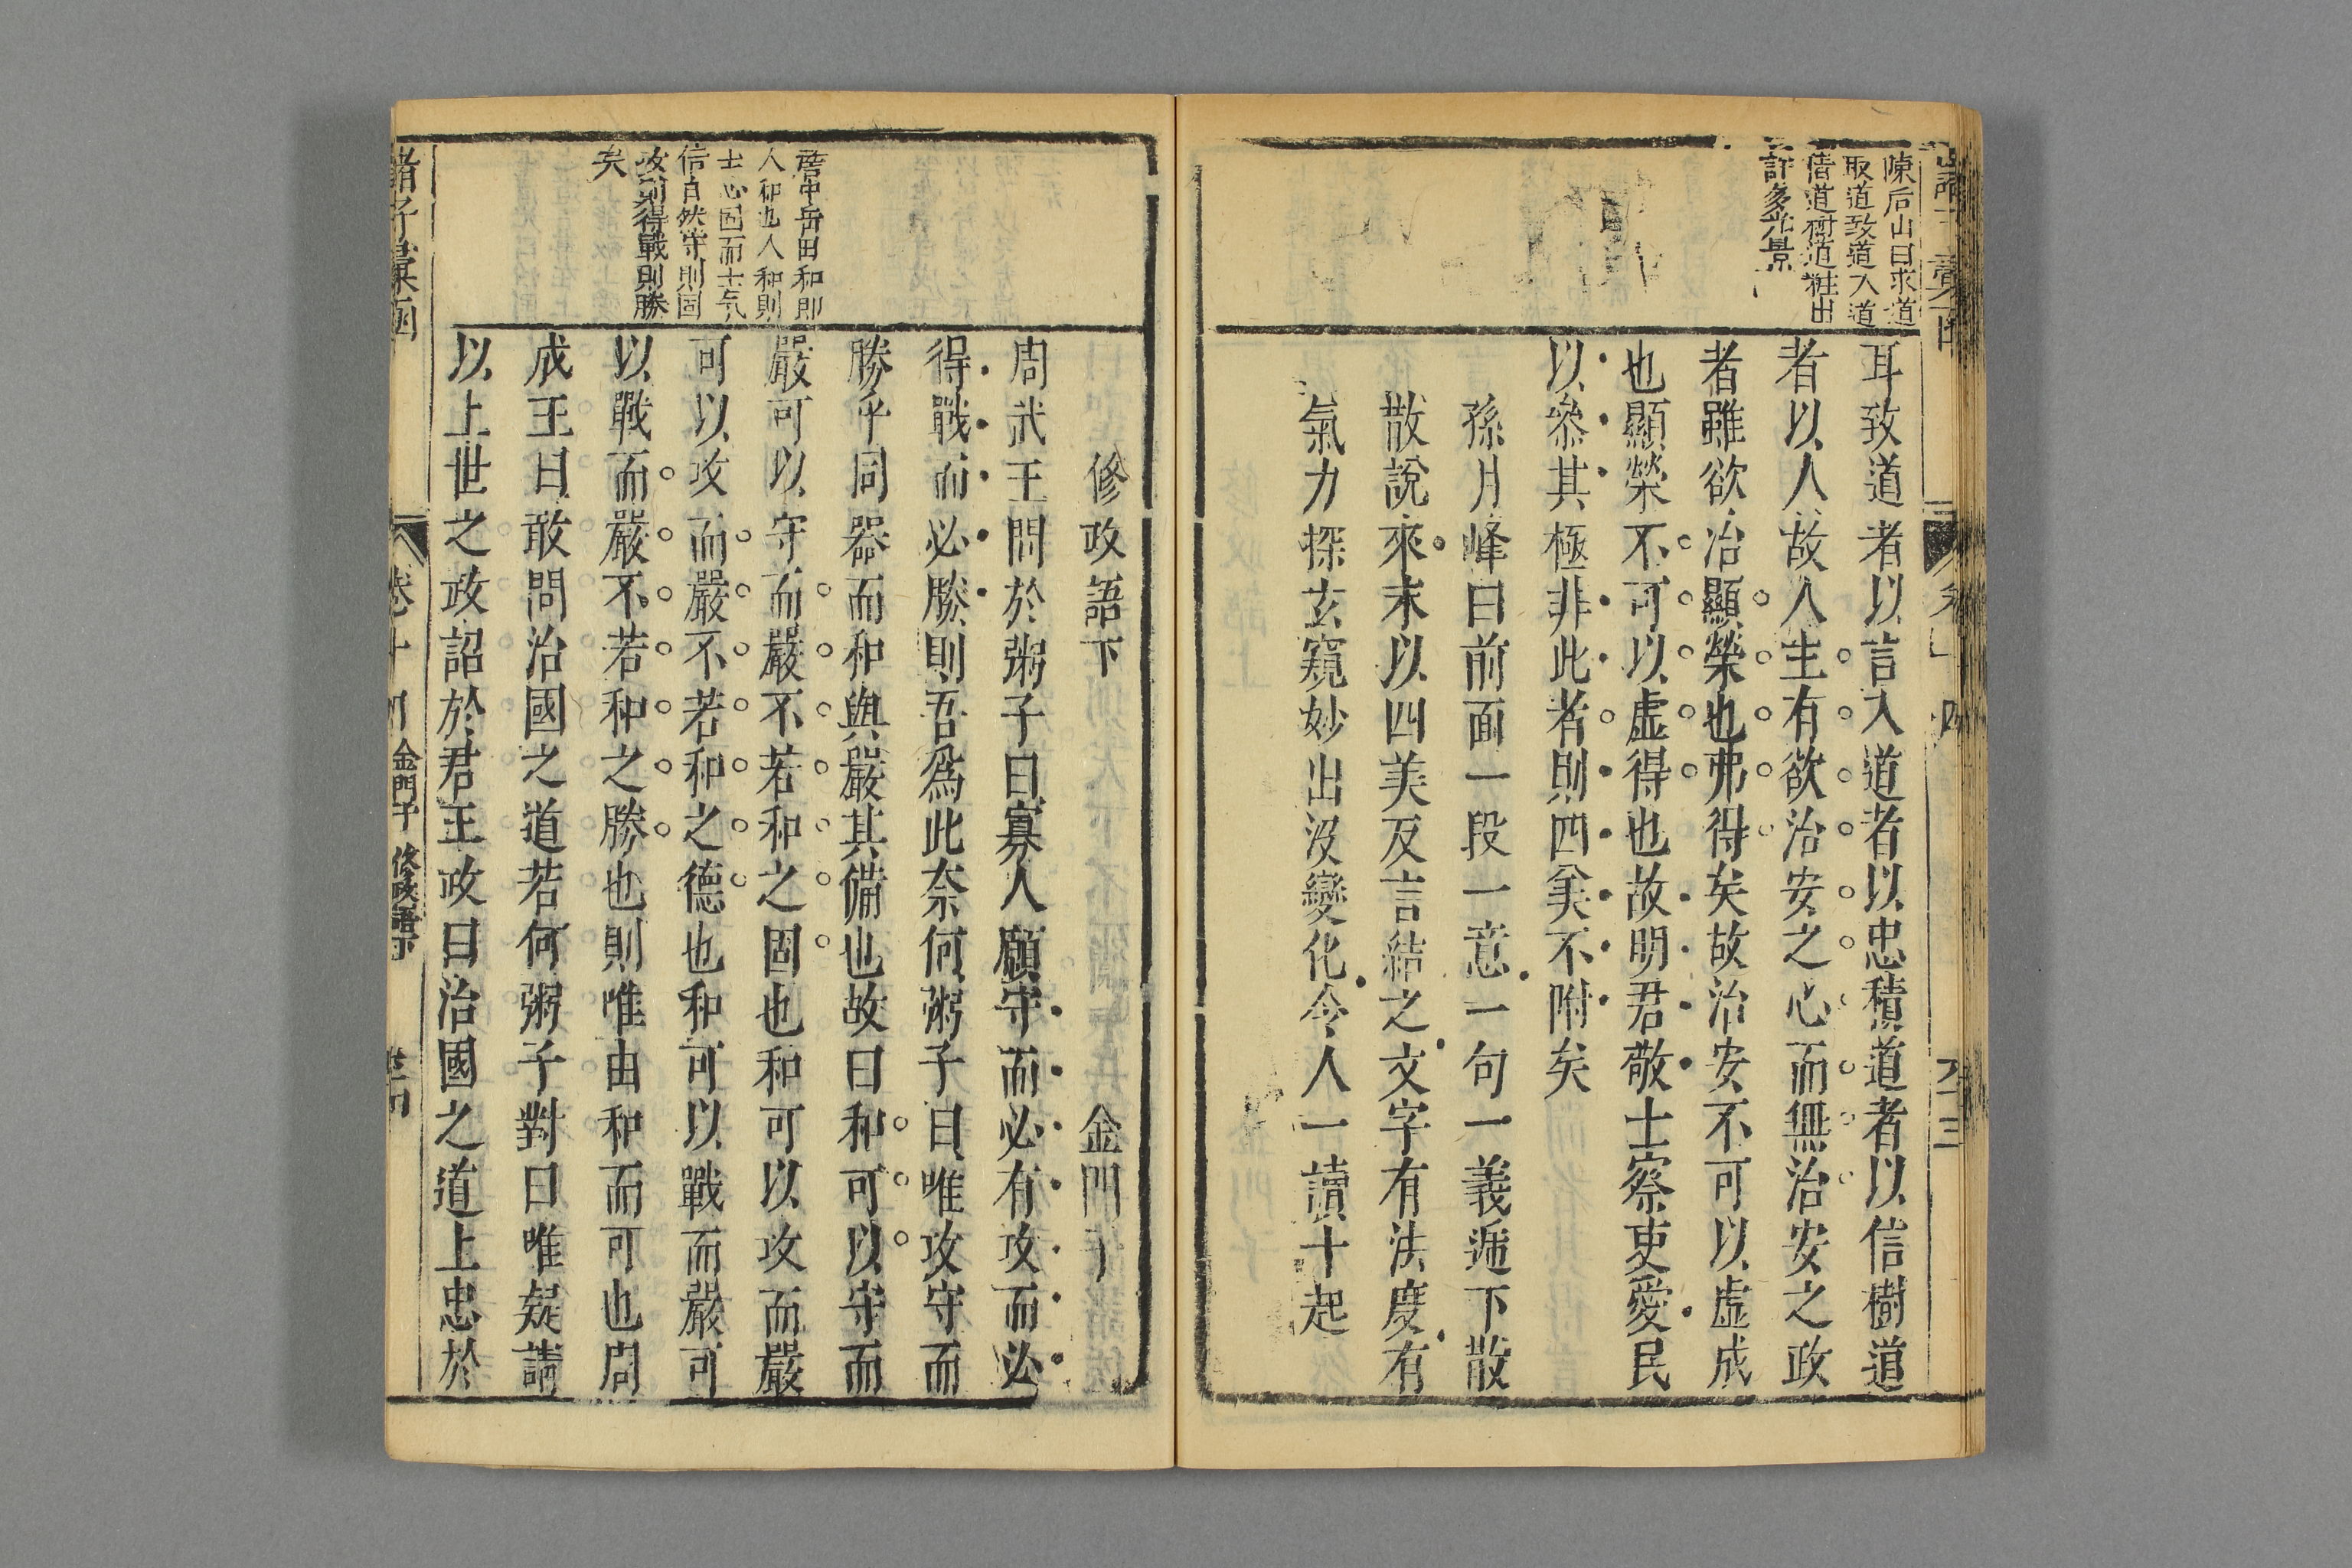 陳后山曰求道
取道致道入道
積道樹道粧出
許多光景
耳致道者以言入道者以忠積道者以信樹道
者以人故人生有欲治安之心而無治安之政
者雖欲治顯榮也弗得矣故治安不可以虛成
也顯榮不可以虛得也故明君敬士察吏愛民
以參其極非此者則四美不附矣
孫月峰曰前面一段一意一句一義遞下散
散說來末以四美反言結之文字有法度有
氣力探玄窺妙出沒變化令人一讀十起
唐中岳曰和即
人和也人和則
士心固而士氣
信自然守則固
攻則得戰則勝
矣
修政語下 金門子
周武王問於粥子曰寡人願守而必有攻而必
得戰而必勝則吾爲此奈何粥子曰唯攻守而
勝乎同器而和與嚴其備也故曰和可以守而
嚴可以守而嚴不若和之固也和可以攻而嚴
可以攻而嚴不若和之德也和可以戰而嚴可
以戰而嚴不若和之勝也則唯由和而可也周
成王曰敢問治國之道若何粥子對曰唯疑請
以上世之政詔於君王政曰治國之道上忠於
諸子彙函 卷十 金門子 修政語下